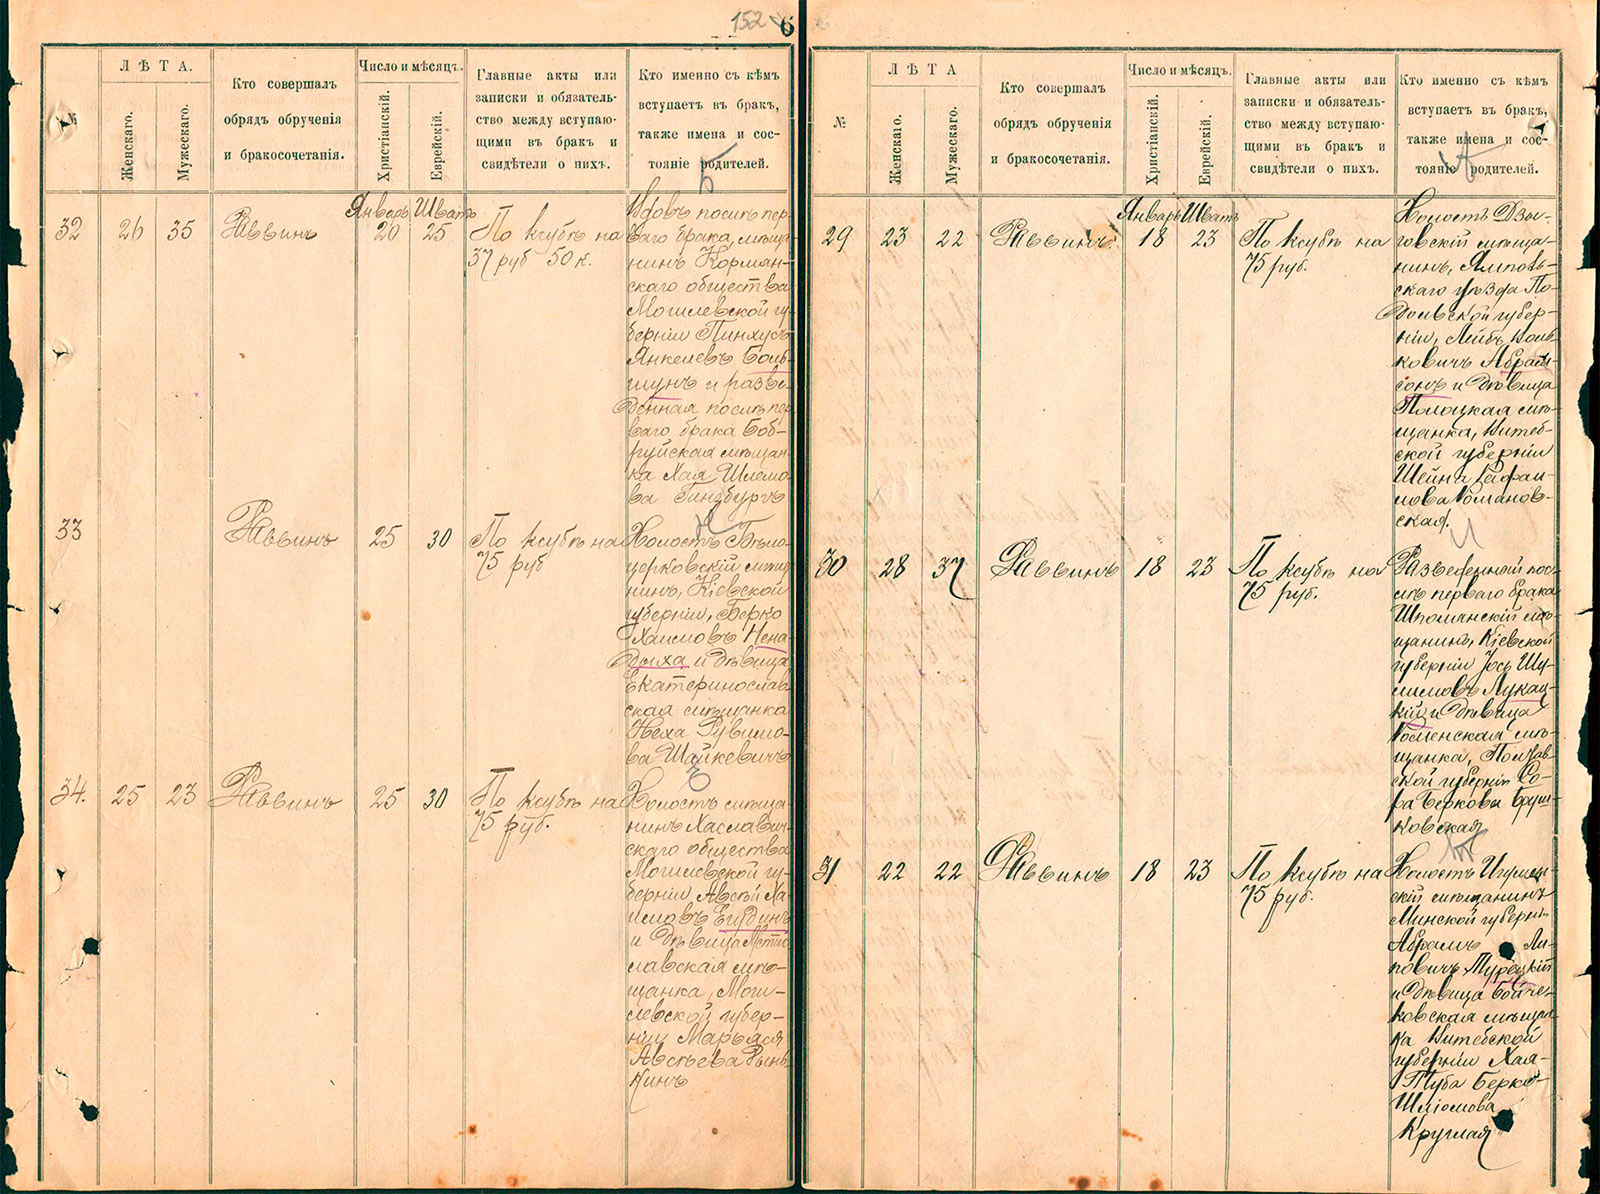 152 6
№
ЛѢТА.
Женскаго.
Мужескаго.
Кто совершалъ
обрядъ обрученія
и бракосочетанія.
Число и мѣсяцъ.
Христіанскій.
Еврейскій.
Главные акты или
записки и обязатель-
ство между вступаю-
щими въ бракъ и
свидѣтели о нихъ.
Кто именно съ кѣмъ
вступаетъ въ бракъ,
также имена и сос-
тояніе родителей.
32 26 35 Раввинъ
Январь Шватъ
20 25
По ксубѣ на
37 руб 50 к.
Вдовъ послѣ пер-
ваго брака, мѣща-
нинъ Кормян-
скаго общества
Могилевской гу-
берніи Пинхусъ
Янкелевъ Боль-
шунъ и разве-
денная послѣ пер-
ваго брака Боб-
руйская мѣщан-
ка Хая Шлемо-
ва Гинзбургъ
33 Раввинъ 25 30
По ксубѣ на
75 руб
Холостъ Бѣло-
церковскій мѣща-
нинъ, Кіевской
губерніи, Берко
Хаимовъ Нена-
дыха и дѣвица
Екатеринослав-
ская мѣщанка
Неха Рувимо-
ва Шайкевичъ
34. 25 23 Раввинъ 25 30
По ксубѣ на
75 руб.
Холостъ мѣща-
нинъ Хаславич-
скаго общества
Могилевской гу-
берніи Авсѣй Ха-
имовъ Егудинъ
и дѣвица Мсти-
славская мѣ-
щанка, Моги-
левской губер-
ніи Марьяся
Авсѣева Рынь-
кинъ
№
ЛѢТА
Женскаго.
Мужескаго.
Кто совершалъ
обрядъ обрученія
и бракосочетанія.
Число и мѣсяцъ.
Христіанскій.
Еврейскій.
Главные акты или
записки и обязатель-
ство между вступаю-
щими въ бракъ и
свидѣтели о нихъ.
Кто именно съ кѣмъ
вступаетъ въ бракъ,
также имена и сос-
тояніе родителей.
29 23 22 Раввинъ
Январь Шватъ
18 23
По ксубѣ на
75 руб.
Холостъ Дзы-
говскій мѣща-
нинъ, Ямполь-
скаго уѣзда По-
дольской губер-
ніи, Лейбъ Воль-
ковичъ Абрам-
сонъ и дѣвица
Полоцкая мѣ-
щанка, Витеб-
ской губерніи
Шейна Рафаи-
лова Романов-
ская.
30 28 37 Раввинъ 18 23
По ксубѣ на
75 руб.
Разведенный пос-
лѣ перваго брака
Шполянскій мѣ-
щанинъ, Кіевской
губерніи Іось Шу-
лимовъ Лукац-
кій и дѣвица
Роменская мѣ-
щанка, Полтав-
ской губерніи Со-
ра Беркова Бруш-
ковская
31 22 22 Раввинъ 18 23
По ксубѣ на
75 руб.
Холостъ Игумен-
скій мѣщанинъ
Минской губерніи
Абрамъ Ли-
повичъ Турецкій
и дѣвица Бойче-
ковская мѣщан-
ка Витебской
губерніи Хая-
Туба Берко-
Шліомова
Круглая